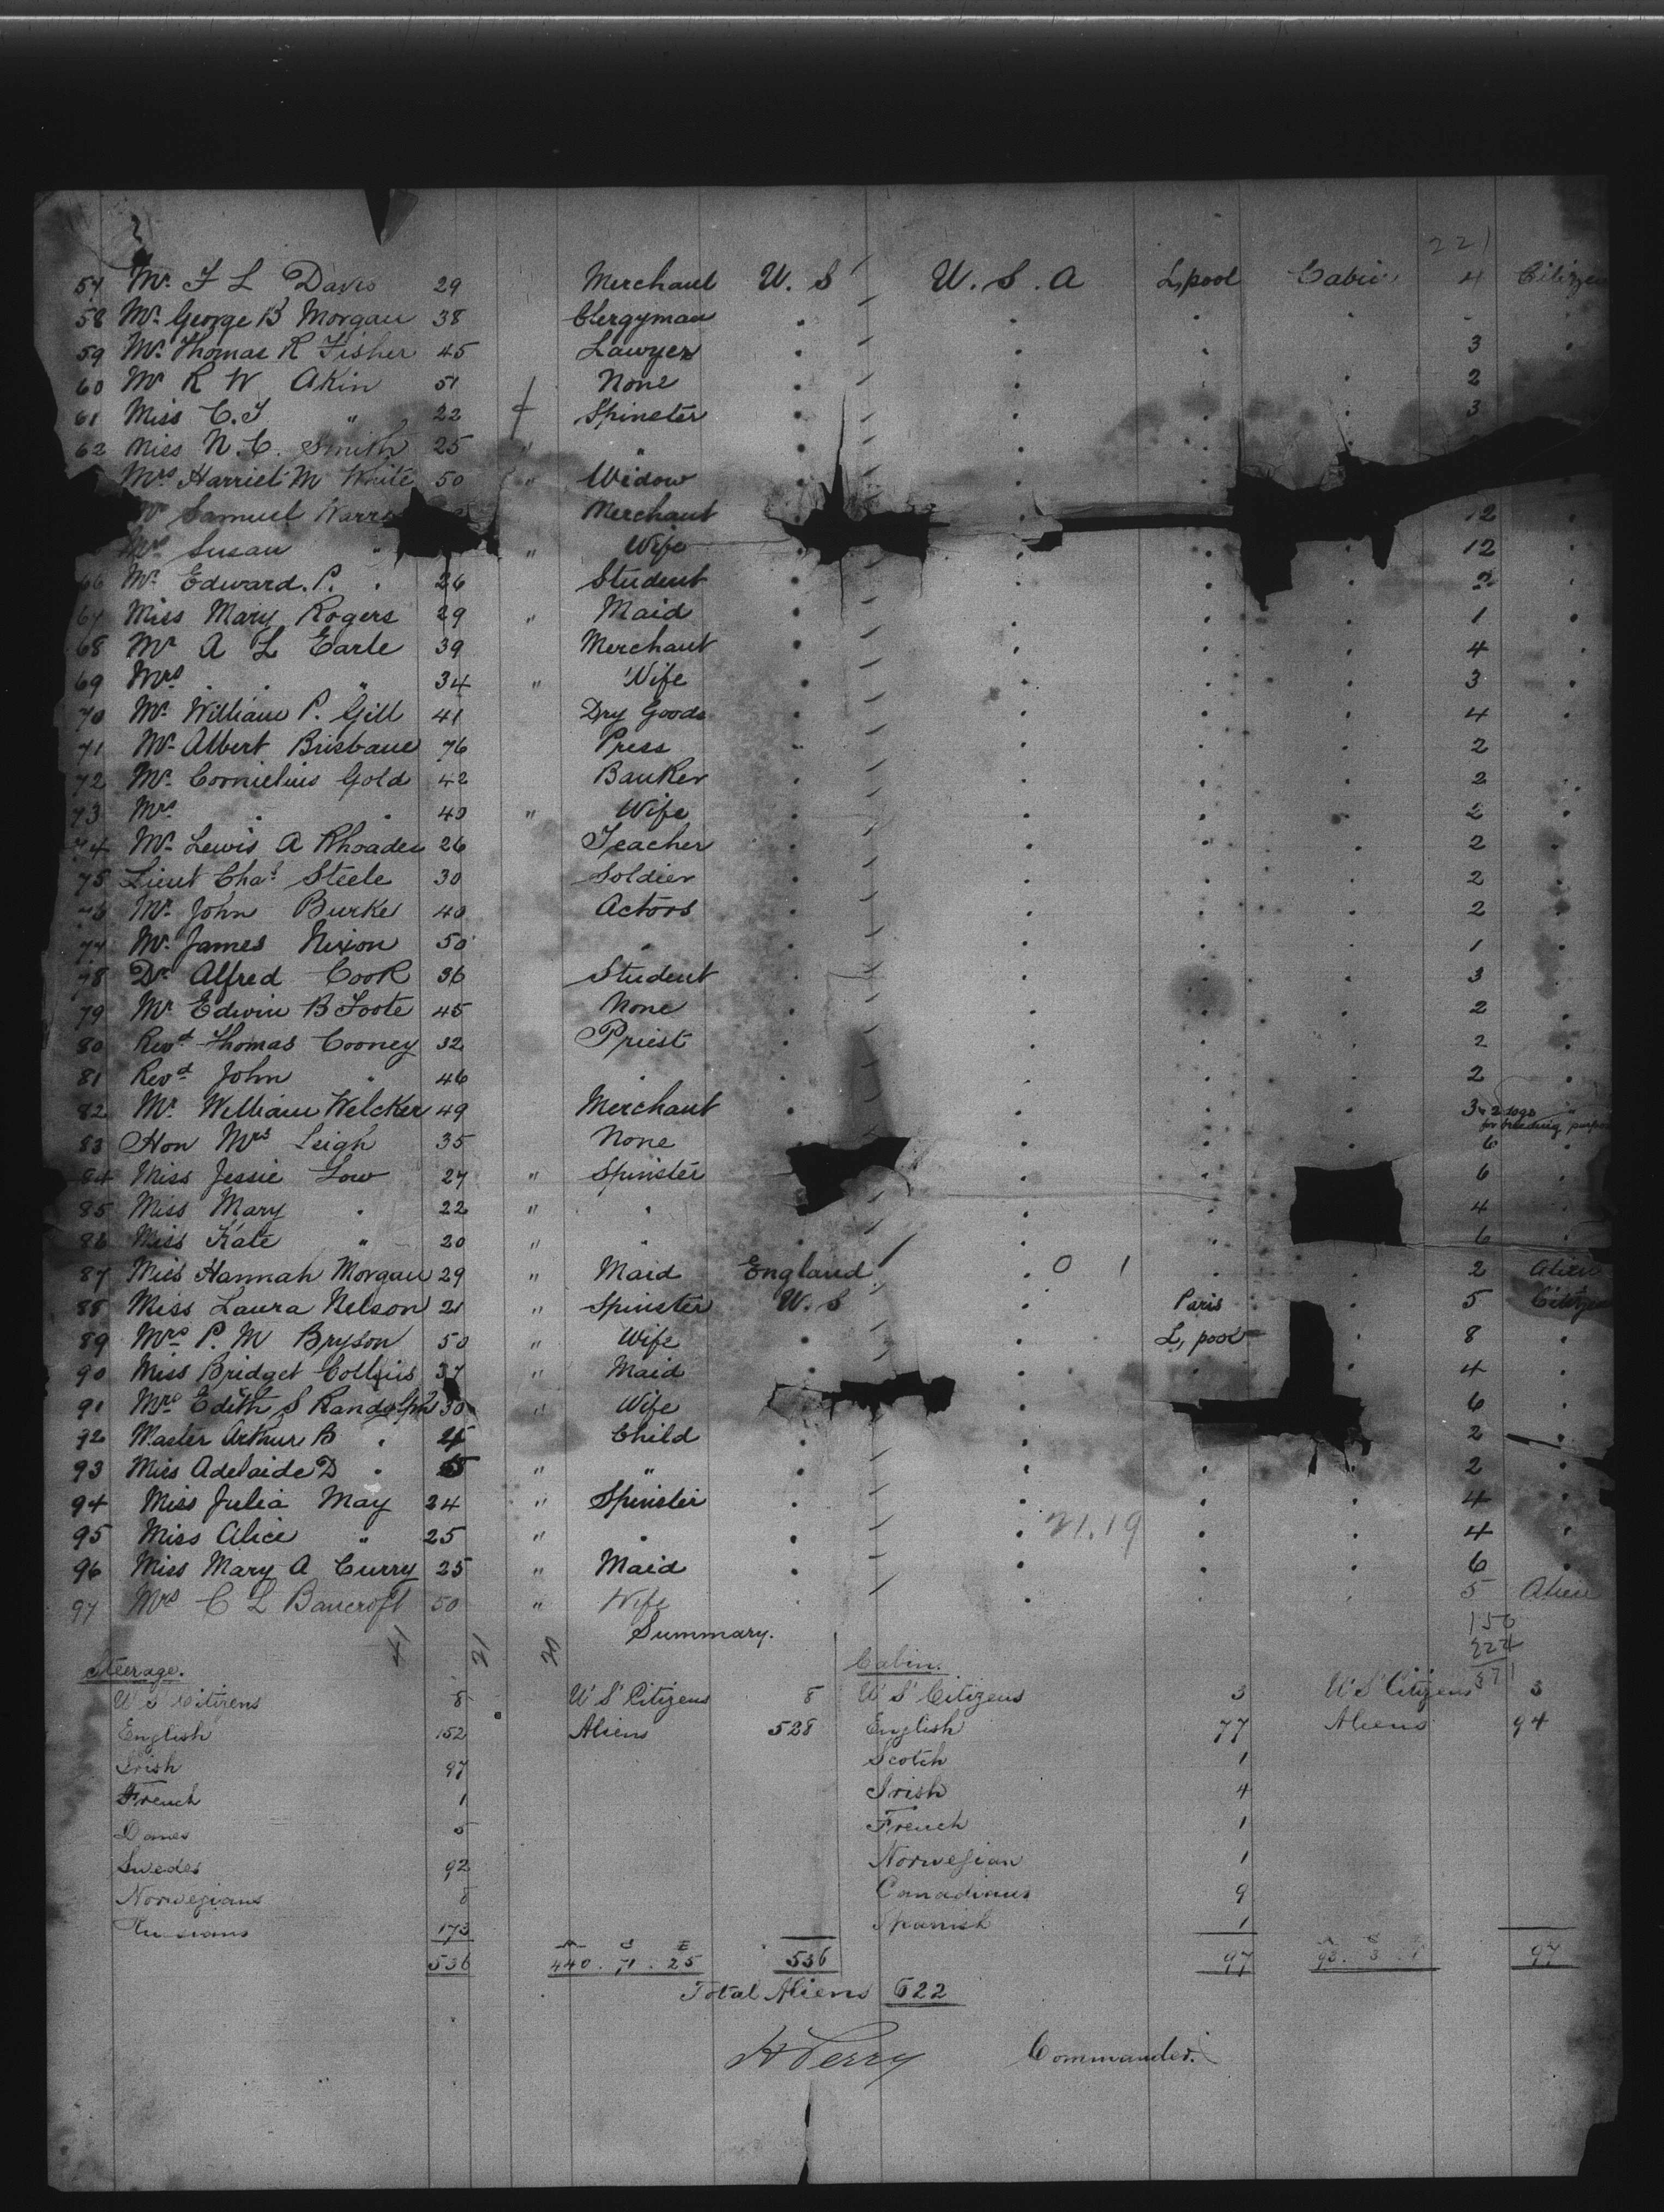 221
57 Mr. F L Davis 29 Merchant U. S U. S. A L,pool Cabin 4 Citizen
58 Mr. George B Morgan 38 Clergyman . . . . . .
59 Mr. Thomas R Fisher 45 Lawyer . . . 3 .
60 Mr R W Akin 51 None . . . . 2
61 Miss C. I " 22 Spinster . . . . 3
62 Miss N. C. Smith 25 " " .
Mrs Harriet M White 50 " Widow .
Mr Samuel Merchant . 12 .
Mrs Susan " " Wife . . . . 12 .
66 Mr. Edward. P. . 26 Student . . . 2 .
67 Miss Mary Rogers 29 " Maid . . . . 1 .
68 Mr A L Earle 39 Merchant . . . . 4 .
69 Mrs . . " 34 " Wife . . . . 3 .
70 Mr. William P. Gill 41 Dry Goods . . . . 4 .
71 Mr. Albert Brisbane 76 Press . . . . 2 .
72 Mr. Cornielius Gold 42 Banker . . . . 2 .
73 Mrs . . 40 " Wife . . . . 2 .
74 Mr. Lewis A Rhoades 26 Teacher . . . . 2 .
75 Lieut Chas Steele 30 Soldier . . . . 2 .
76 Mr. John Burke 40 Actors . . . . 2 .
77 Mr. James Nixon 50 . . . . . 1 .
78 Dr. Alfred Cook 36 Student . . . . 3 .
79 Mr Edwin B Foote 45 None . . . . 2 .
80 Revd Thomas Cooney 32 Priest . . . . 2 .
81 Revd John " 46 . . . . . 2 .
82 Mr. William Welcker 49 Merchant . . . . 3 & 2 dogs "
for breeding purpos
83 Hon Mrs Leigh 35 None . . . 6 .
84 Miss Jessie Low 27 " Spinster . . 6 .
85 Miss Mary . 22 " . . . 4 .
86 Miss Kate " 20 " . . . . 6 .
87 Miss Hannah Morgan 29 " Maid England . 0 1 . . 2 Alien
88 Miss Laura Nelson 21 " Spinster U. S . Paris . 5 Citizen
89 Mrs P. M Bryson 50 " Wife . . L, pool . 8 .
90 Miss Bridget Collins 37 " Maid . . . . 4 .
91 Mrs Edith S Randolph 30 " Wife . 6 .
92 Master Arthur B . 4 Child . . 2 .
93 Miss Adelaide D . 5 " " . . . . 2 .
94 Miss Julia May 24 " Spinster . . . . 4 .
95 Miss Alice " 25 " . . . 21.19 . . 4 .
96 Miss Mary A Curry 25 " Maid . . . . 6 .
97 Mrs C L Bancroft 50 " Wife . . . . 5 Alien
Summary. 150
224
371
Steerage. Cabin.
U S Citizens 8 U S Citizens 8 U S Citizens 3 U S Citizens 3
English 152 Aliens 528 English 77 Aliens 94
Irish 97 Scotch 1
French 1 Irish 4
Danes 5 French 1
Swedes 92 Norwegian 1
Norwegians 8 Canadians 9
Russians 173 Spanish 1
536 440 . 71 . 25 536 97 93 . 3 . 1 97
Total Aliens 622
H Perry Commander.